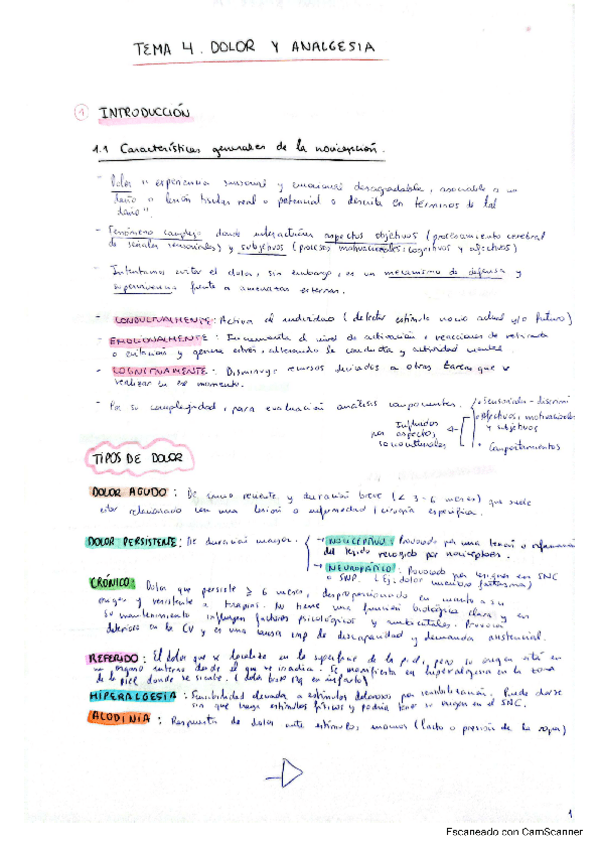 TEMA 4. DOLOR Y ANALGESIA
1 INTRODUCCIÓN
1.1 Características generales de la nocicepción.
- Dolor " experiencia sensorial y emocional desagradable, asociable a un
daño o lesión tisular real o potencial o descrita en términos de tal
daño".
- Fenómeno complejo donde interactúan aspectos objetivos (procesamiento cerebral
de señales sensoriales) y subjetivos (procesos motivacionales: cognitivos y afectivos)
- Intentamos evitar el dolor, sin embargo, es un mecanismo de defensa y
supervivencia frente a amenazas externas.
- CONDUCTUALMENTE: Activa al individuo (detectar estímulo nocivo actual y/o futuro)
- EMOCIONALMENTE: Incrementa el nivel de activación, reacciones de retirada
o evitación y genera estrés, alterando la conducta y actividad mental.
- COGNITIVAMENTE: Disminuye recursos derivados a otras tareas que
realizar en ese momento.
- Por su complejidad, para evaluación análisis componentes.
• Sensoriales-discrimi
• afectivos, motivacionales
y subjetivos
• Comportamientos
Influidos
por aspectos
socioculturales
TIPOS DE DOLOR
DOLOR AGUDO: De inicio reciente y duración breve (< 3-6 meses) que suele
estar relacionado con una lesión o enfermedad / cirugía específica.
DOLOR PERSISTENTE: De duración mayor.
→ NOCICEPTIVO: Provocado por una lesión o inflamación
del tejido recogido por nociceptores.
→ NEUROPÁTICO: Provocado por lesiones en SNC
o SNP. (Ej: dolor miembro fantasma)
CRÓNICO: Dolor que persiste ≥ 6 meses, desproporcionado en cuanto a su
origen y resistente a terapias. No tiene una función biológica clara y en
su mantenimiento influyen factores psicológicos y ambientales. Provoca
deterioro en la CV y es una causa imp de discapacidad y demanda asistencial.
REFERIDO: El dolor que se localiza en la superficie de la piel, pero su origen está en
un órgano interno desde el que se irradia. Se manifiesta en hiperalgesia en la zona
de la piel donde se siente. (dolor brazo izq en infarto)
HIPERALGESIA: Sensibilidad elevada a estímulos dolorosos por sensibilización. Puede darse
sin que haya estímulos físicos y podría tener su origen en el SNC.
ALODINIA: Respuesta de dolor ante estímulos inocuos (tacto o presión de la ropa)
1
Escaneado con CamScanner